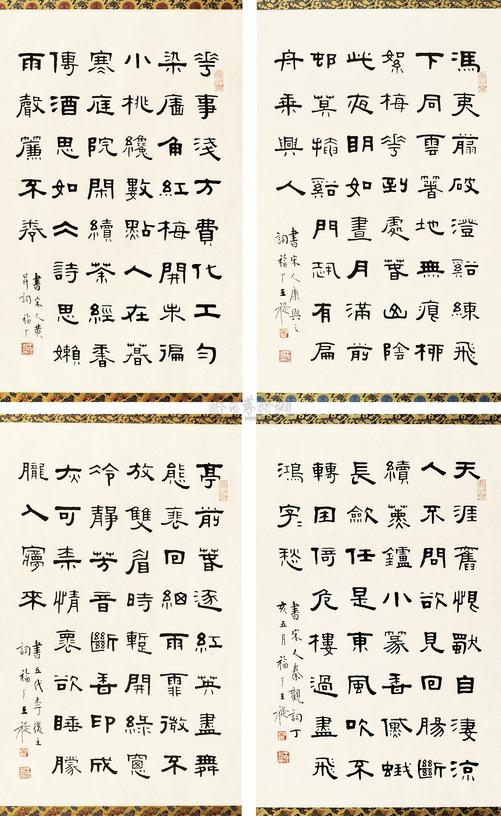 馮夷翦破澄谿練飛
下同雲箸地無痕桺
絮梅華到處春山陰
此夜明如晝月滿前
邨莫揜谿門恐有扁
舟乘興人
書宋人康與之
詞福厂王褆
華事淺方費化工勻
染廧角紅梅開未徧
小桃纔數點人在暮
寒庭院閑續茶經香
傳酒思如仌詩思嬾
雨聲簾不卷
書宋人黃
昇詞福厂
天涯舊恨獨自淒涼
人不問欲見回腸斷
續薰鑪小篆香黛蛾
長斂任是東風吹不
轉困倚危樓過盡飛
鴻字〻愁
書宋人秦觀詞丁
亥五月福厂王褆
亭前春逐紅英盡舞
態裵回細雨霏微不
放雙眉時蹔開綠窗
冷靜芳音斷香印成
灰可柰情褱欲睡朦
朧入夢來
書五代李後主
詞福厂王褆